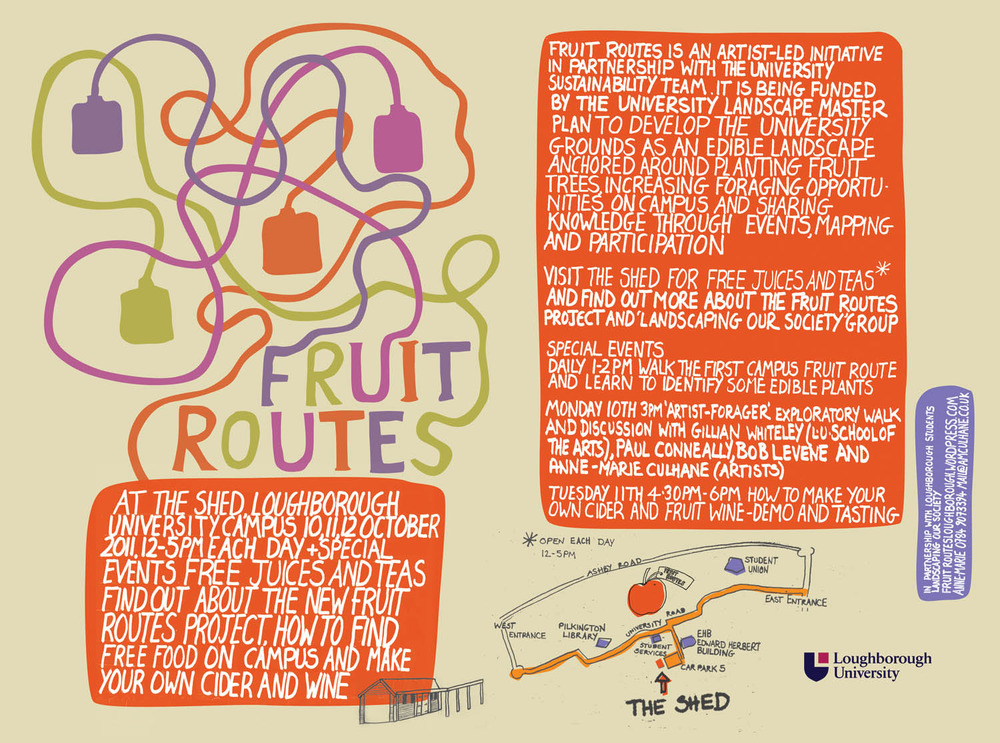 FRUIT
ROUTES
AT THE SHED, LOUGHBOROUGH
UNIVERSITY CAMPUS 10,11,12 OCTOBER
2011, 12-5PM EACH DAY + SPECIAL
EVENTS FREE JUICES AND TEAS
FIND OUT ABOUT THE NEW FRUIT
ROUTES PROJECT, HOW TO FIND
FREE FOOD ON CAMPUS AND MAKE
YOUR OWN CIDER AND WINE
FRUIT ROUTES IS AN ARTIST-LED INITIATIVE
IN PARTNERSHIP WITH THE UNIVERSITY
SUSTAINABILITY TEAM. IT IS BEING FUNDED
BY THE UNIVERSITY LANDSCAPE MASTER
PLAN TO DEVELOP THE UNIVERSITY
GROUNDS AS AN EDIBLE LANDSCAPE
ANCHORED AROUND PLANTING FRUIT
TREES, INCREASING FORAGING OPPORTU-
NITIES ON CAMPUS AND SHARING
KNOWLEDGE THROUGH EVENTS, MAPPING
AND PARTICIPATION
VISIT THE SHED FOR FREE JUICES AND TEAS*
AND FIND OUT MORE ABOUT THE FRUIT ROUTES
PROJECT AND 'LANDSCAPING OUR SOCIETY' GROUP
SPECIAL EVENTS
DAILY 1-2 PM WALK THE FIRST CAMPUS FRUIT ROUTE
AND LEARN TO IDENTIFY SOME EDIBLE PLANTS
MONDAY 10TH 3PM 'ARTIST-FORAGER' EXPLORATORY WALK
AND DISCUSSION WITH GILLIAN WHITELEY (L.U. SCHOOL OF
THE ARTS), PAUL CONNEALLY, BOB LEVENE AND
ANNE-MARIE CULHANE (ARTISTS)
TUESDAY 11TH 4·30PM-6PM HOW TO MAKE YOUR
OWN CIDER AND FRUIT WINE-DEMO AND TASTING
* OPEN EACH DAY
12-5PM
ASHBY ROAD
FRUIT
ROUTES
STUDENT
UNION
EAST ENTRANCE
WEST
ENTRANCE
PILKINGTON
LIBRARY
UNIVERSITY ROAD
STUDENT
SERVICES
EHB
EDWARD HERBERT
BUILDING
CAR PARK 5
THE SHED
IN PARTNERSHIP WITH LOUGHBOROUGH STUDENTS
LANDSCAPING OUR SOCIETY
FRUITROUTESLOUGHBOROUGH.WORDPRESS.COM
ANNE-MARIE 0784 9073394 MAIL@AMCULHANE.CO.UK
Loughborough
University